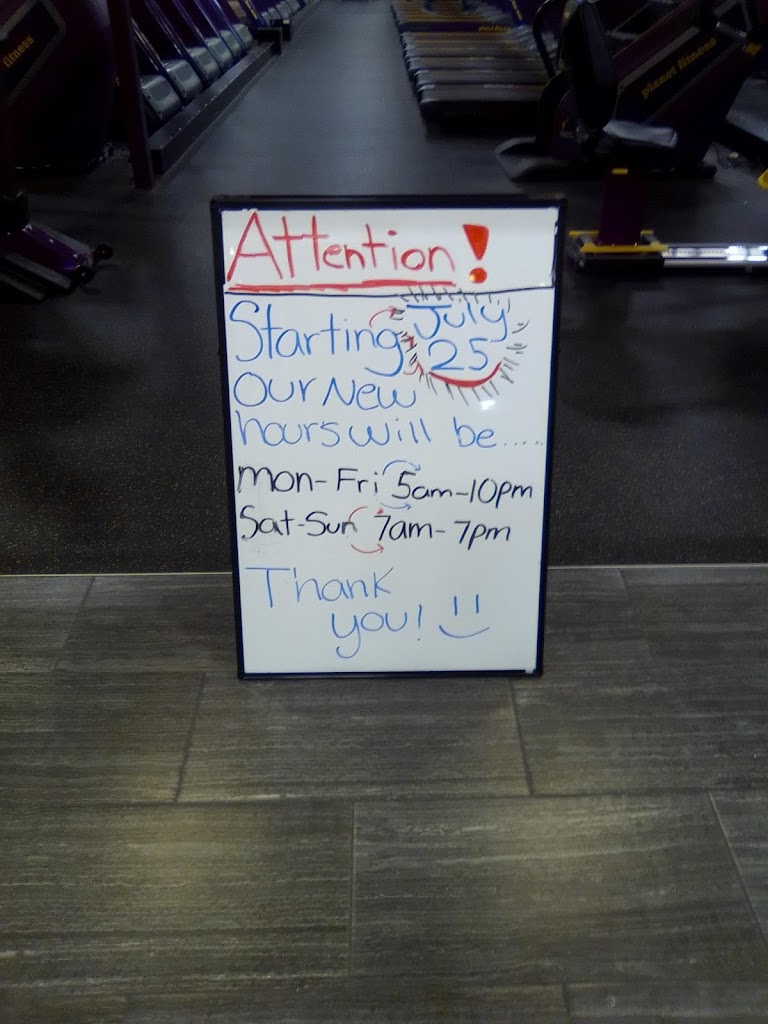 fitness
planet fitness
planet fitness
Attention!
Starting July
25
our New
hours will be.....
Mon-Fri 5am-10pm
Sat-Sun 7am-7pm
Thank
you!